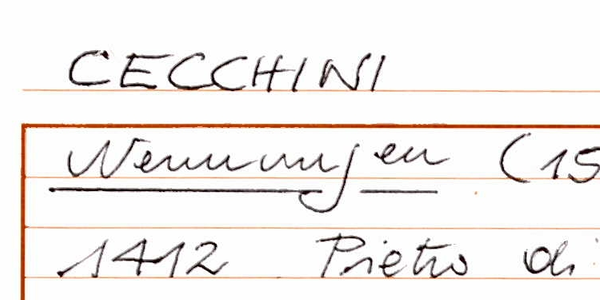 CECCHINI
Nennungen (15
1412 Pietro di